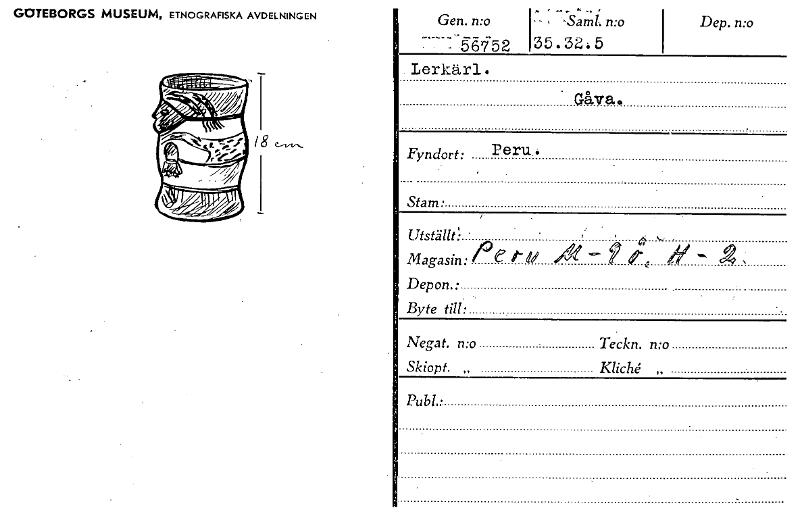 GÖTEBORGS MUSEUM, ETNOGRAFISKA AVDELNINGEN
18 cm
Gen. n:o Saml. n:o Dep. n:o
56752 35.32.5
Lerkärl.
Gåva.
Fyndort: Peru.
Stam:
Utställt:
Magasin: Peru M-9 ö. H-2.
Depon.:
Byte till:
Negat. n:o Teckn. n:o
Skiopt. „ Kliché „
Publ.: